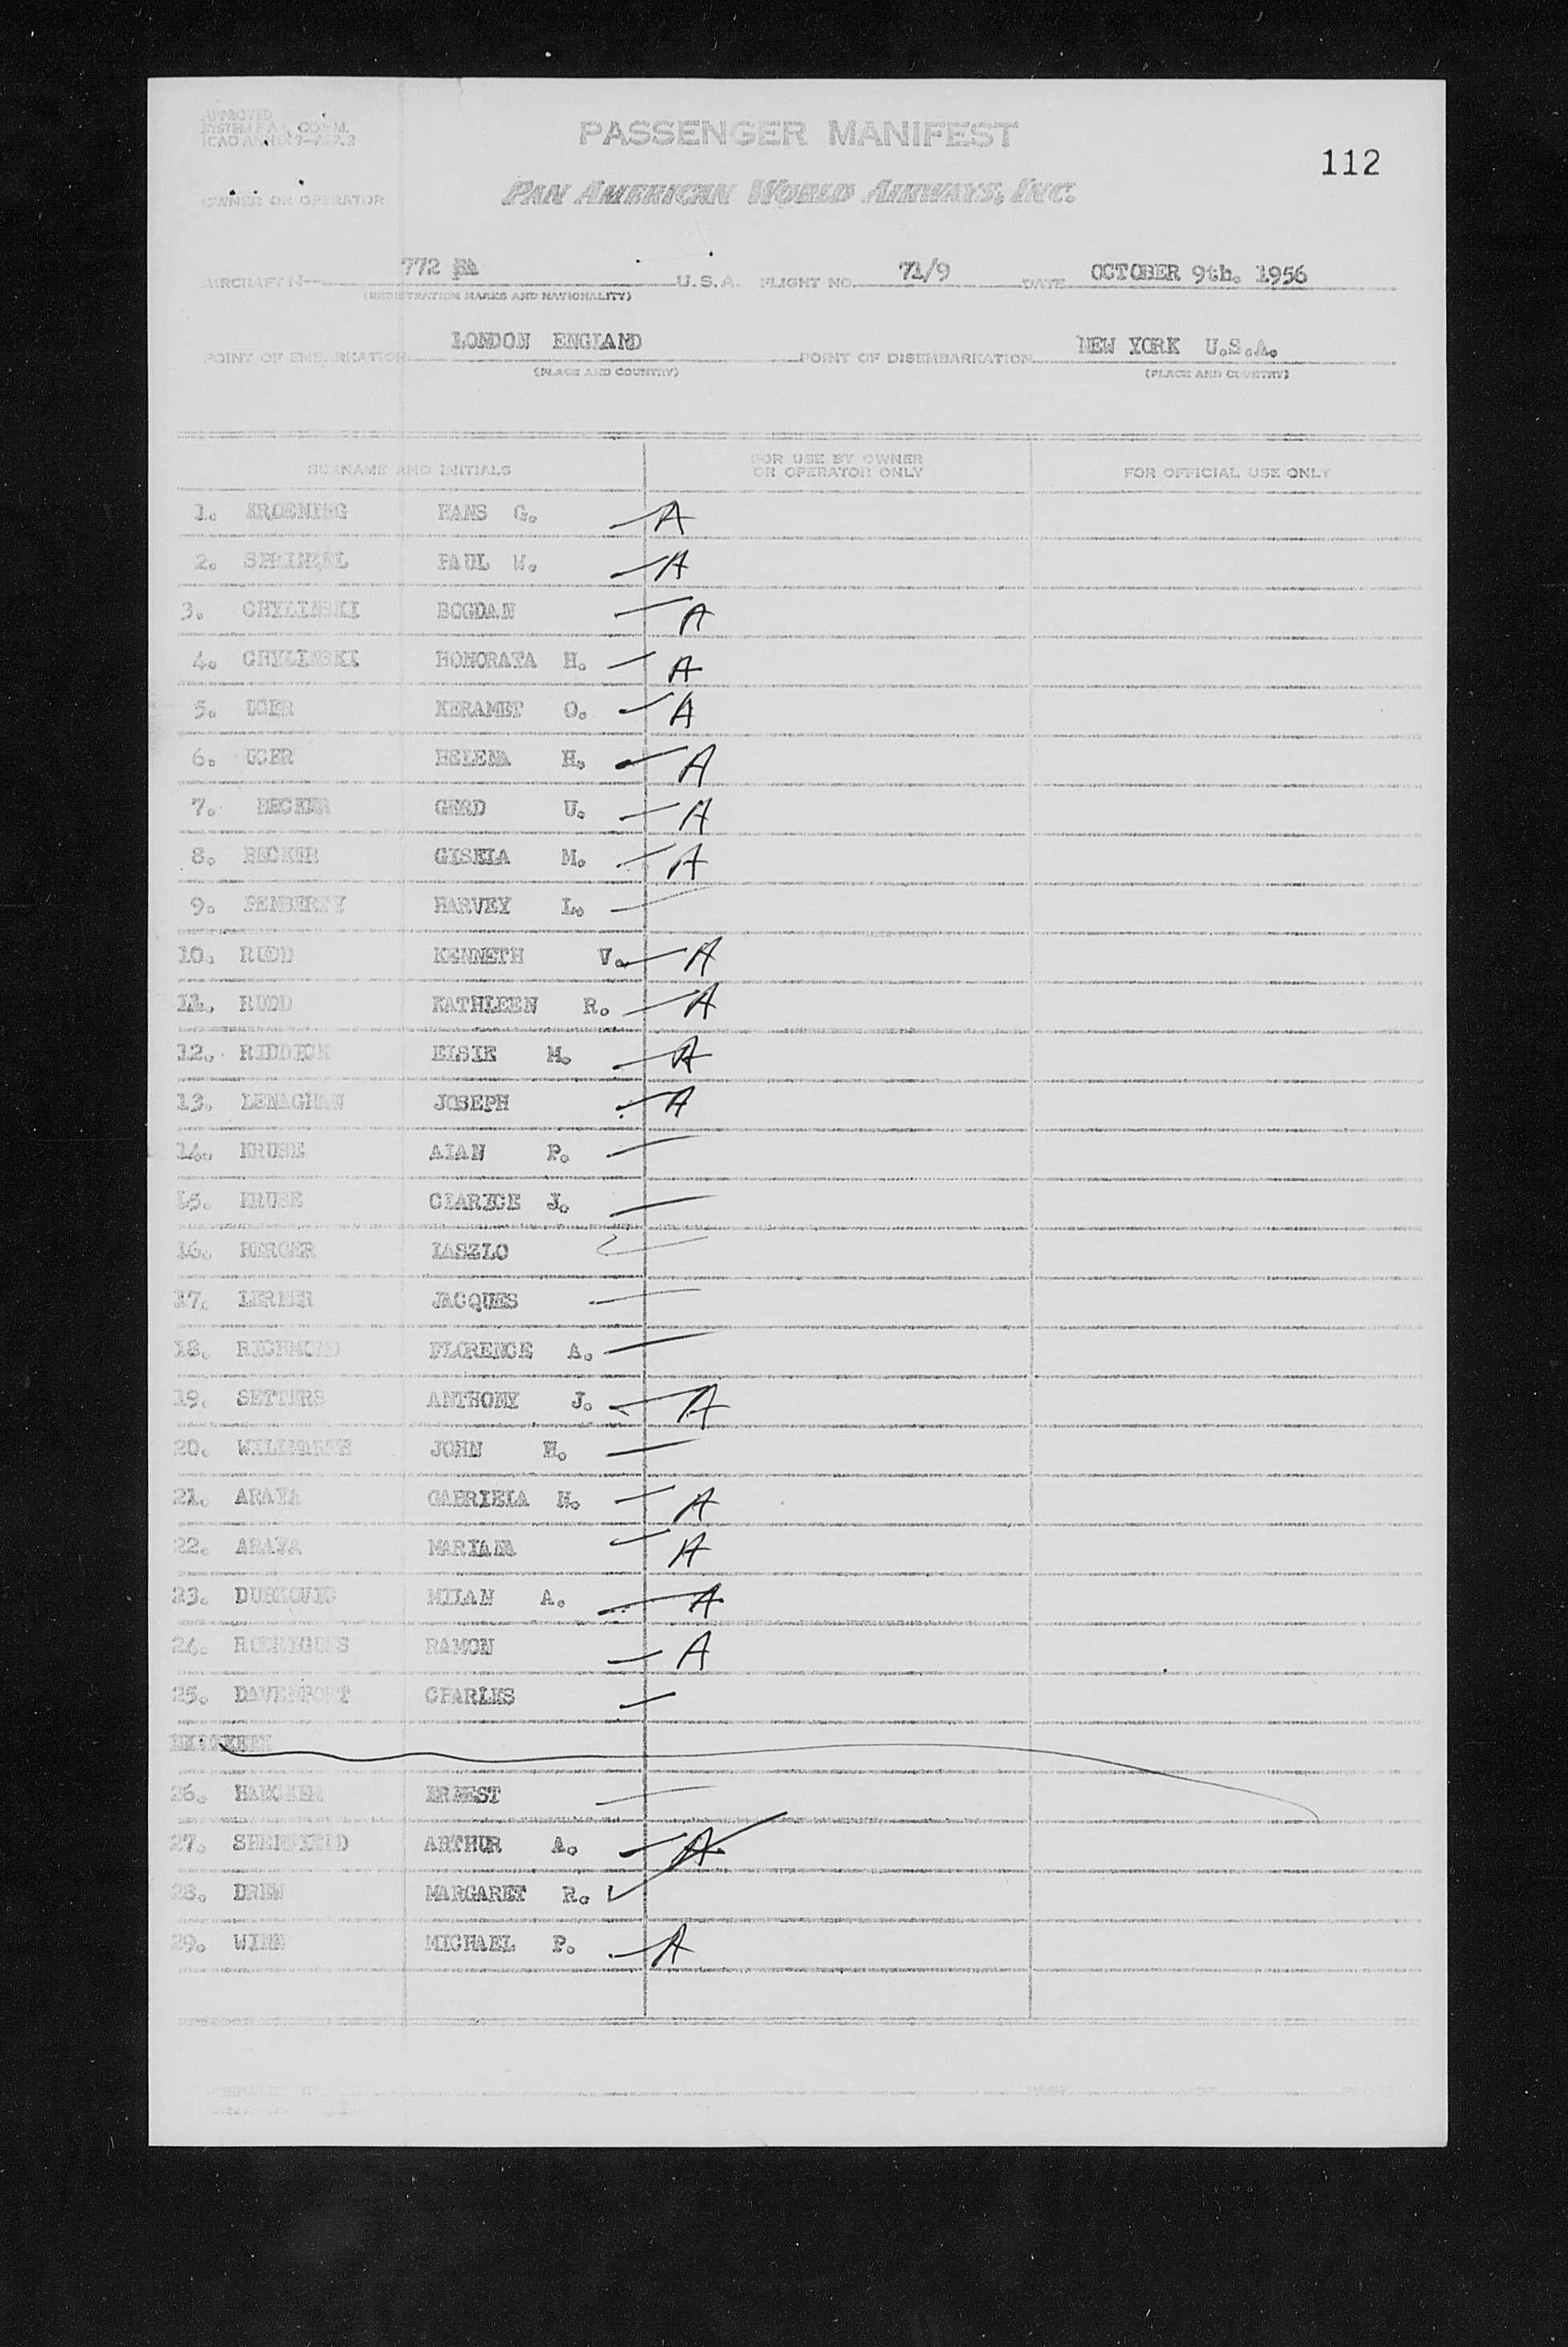 APPROVED
SYSTEM F.A., COMM.
ICAO ANNEX 9-APP.2
PASSENGER MANIFEST
112
OWNER OR OPERATOR
PAN AMERICAN WORLD AIRWAYS, INC.
AIRCRAFT N-- 772 PA U.S.A. FLIGHT NO. 71/9 DATE OCTOBER 9th. 1956
(REGISTRATION MARKS AND NATIONALITY)
POINT OF EMBARKATION LONDON ENGLAND POINT OF DISEMBARKATION NEW YORK U.S.A.
(PLACE AND COUNTRY) (PLACE AND COUNTRY)
SURNAME AND INITIALS FOR USE BY OWNER OR OPERATOR ONLY FOR OFFICIAL USE ONLY
1. KROENING HANS G. A
2. PAUL W. A
3. CHYLINSKI BOGDAN A
4. CHYLINSKI HONORATA H. A
5. UGER KERAMET O. A
6. UGER HELENA H. A
7. BECKER GERD U. A
8. BECKER GISELA M. A
9. PENBERTY HARVEY L.
10. RUDD KENNETH V. A
11. RUDD KATHLEEN R. A
12. RIDDICK ELSIE M. A
13. LENAGHAN JOSEPH A
14. KRUSE ALAN P.
15. KRUSE CLARICE J.
16. BERGER LASZLO
17. LERNER JACQUES
18. RICHMOND FLORENCE A.
19. SETTERS ANTHONY J. A
20. WILLMARTH JOHN H.
21. ARAYA GABRIELA M. A
22. ARAYA MARIANA A
23. DUSKOVIC MILAN A. A
24. RODRIGUES RAMON A
25. DAVENPORT CHARLES
26. HAECKER ERNEST
27. SHENFIELD ARTHUR A. A
28. DREW MARGARET R.
29. WINN MICHAEL P. A